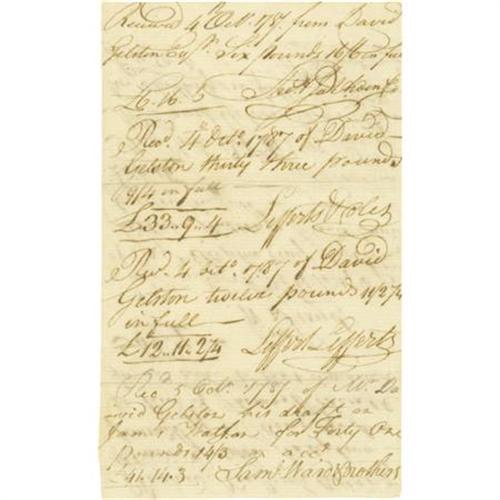 Received 4 Octr. 1787 from David
Gelston Esqr. Six pounds 16/5 in full
£6.16.5
Recd. 4th Octr. 1787 of David
Gelston thirty three pounds
9/4 in full
£33..9..4 Lefferts & Coles
Recd. 4 Octr. 1787 of David
Gelston twelve pounds 11/2 3/4
in full
£12..11..2 3/4 Leffert Lefferts
Recd 5 Octr. 1787 of Mr. Da
vid Gelston his draft on
James Watson for Forty One
pounds 14/3 on acct.
41.14.3 Saml. Ward & Brothers